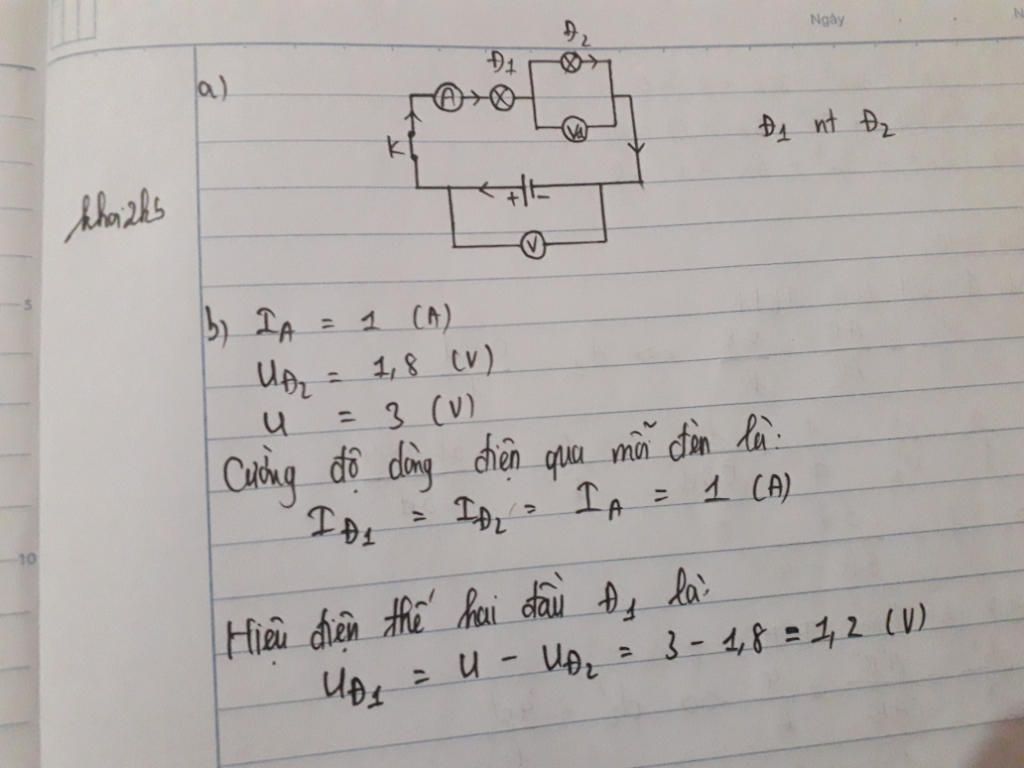 Ngày
N
a)
Đ2
Đ1
A
V2
K
Đ1 nt Đ2
+ -
V
khoi2k5
5
b) IA = 1 (A)
UĐ2 = 1,8 (V)
U = 3 (V)
Cường độ dòng điện qua mỗi đèn là:
IĐ1 = IĐ2 = IA = 1 (A)
10
Hiệu điện thế hai đầu Đ1 là:
UĐ1 = U - UĐ2 = 3 - 1,8 = 1,2 (V)